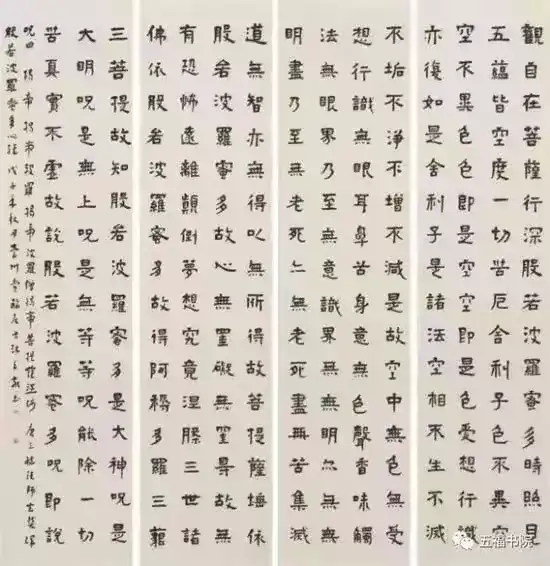 觀自在菩薩行深般若波羅蜜多時照見
五蘊皆空度一切苦厄舍利子色不異空
空不異色色即是空空即是色受想行識
亦復如是舍利子是諸法空相不生不滅
不垢不淨不增不減是故空中無色無受
想行識無眼耳鼻舌身意無色聲香味觸
法無眼界乃至無意識界無無明亦無無
明盡乃至無老死亦無老死盡無苦集滅
道無智亦無得以無所得故菩提薩埵依
般若波羅蜜多故心無罣礙無罣礙故無
有恐怖遠離顛倒夢想究竟涅槃三世諸
佛依般若波羅蜜多故得阿耨多羅三藐
三菩提故知般若波羅蜜多是大神呪是
大明呪是無上呪是無等等呪能除一切
苦真實不虛故說般若波羅蜜多呪即說
呪曰揭帝揭帝波羅揭帝波羅僧揭帝菩提唐三藏法師玄奘譯
般若波羅蜜多心經戊子年秋月
五福书院